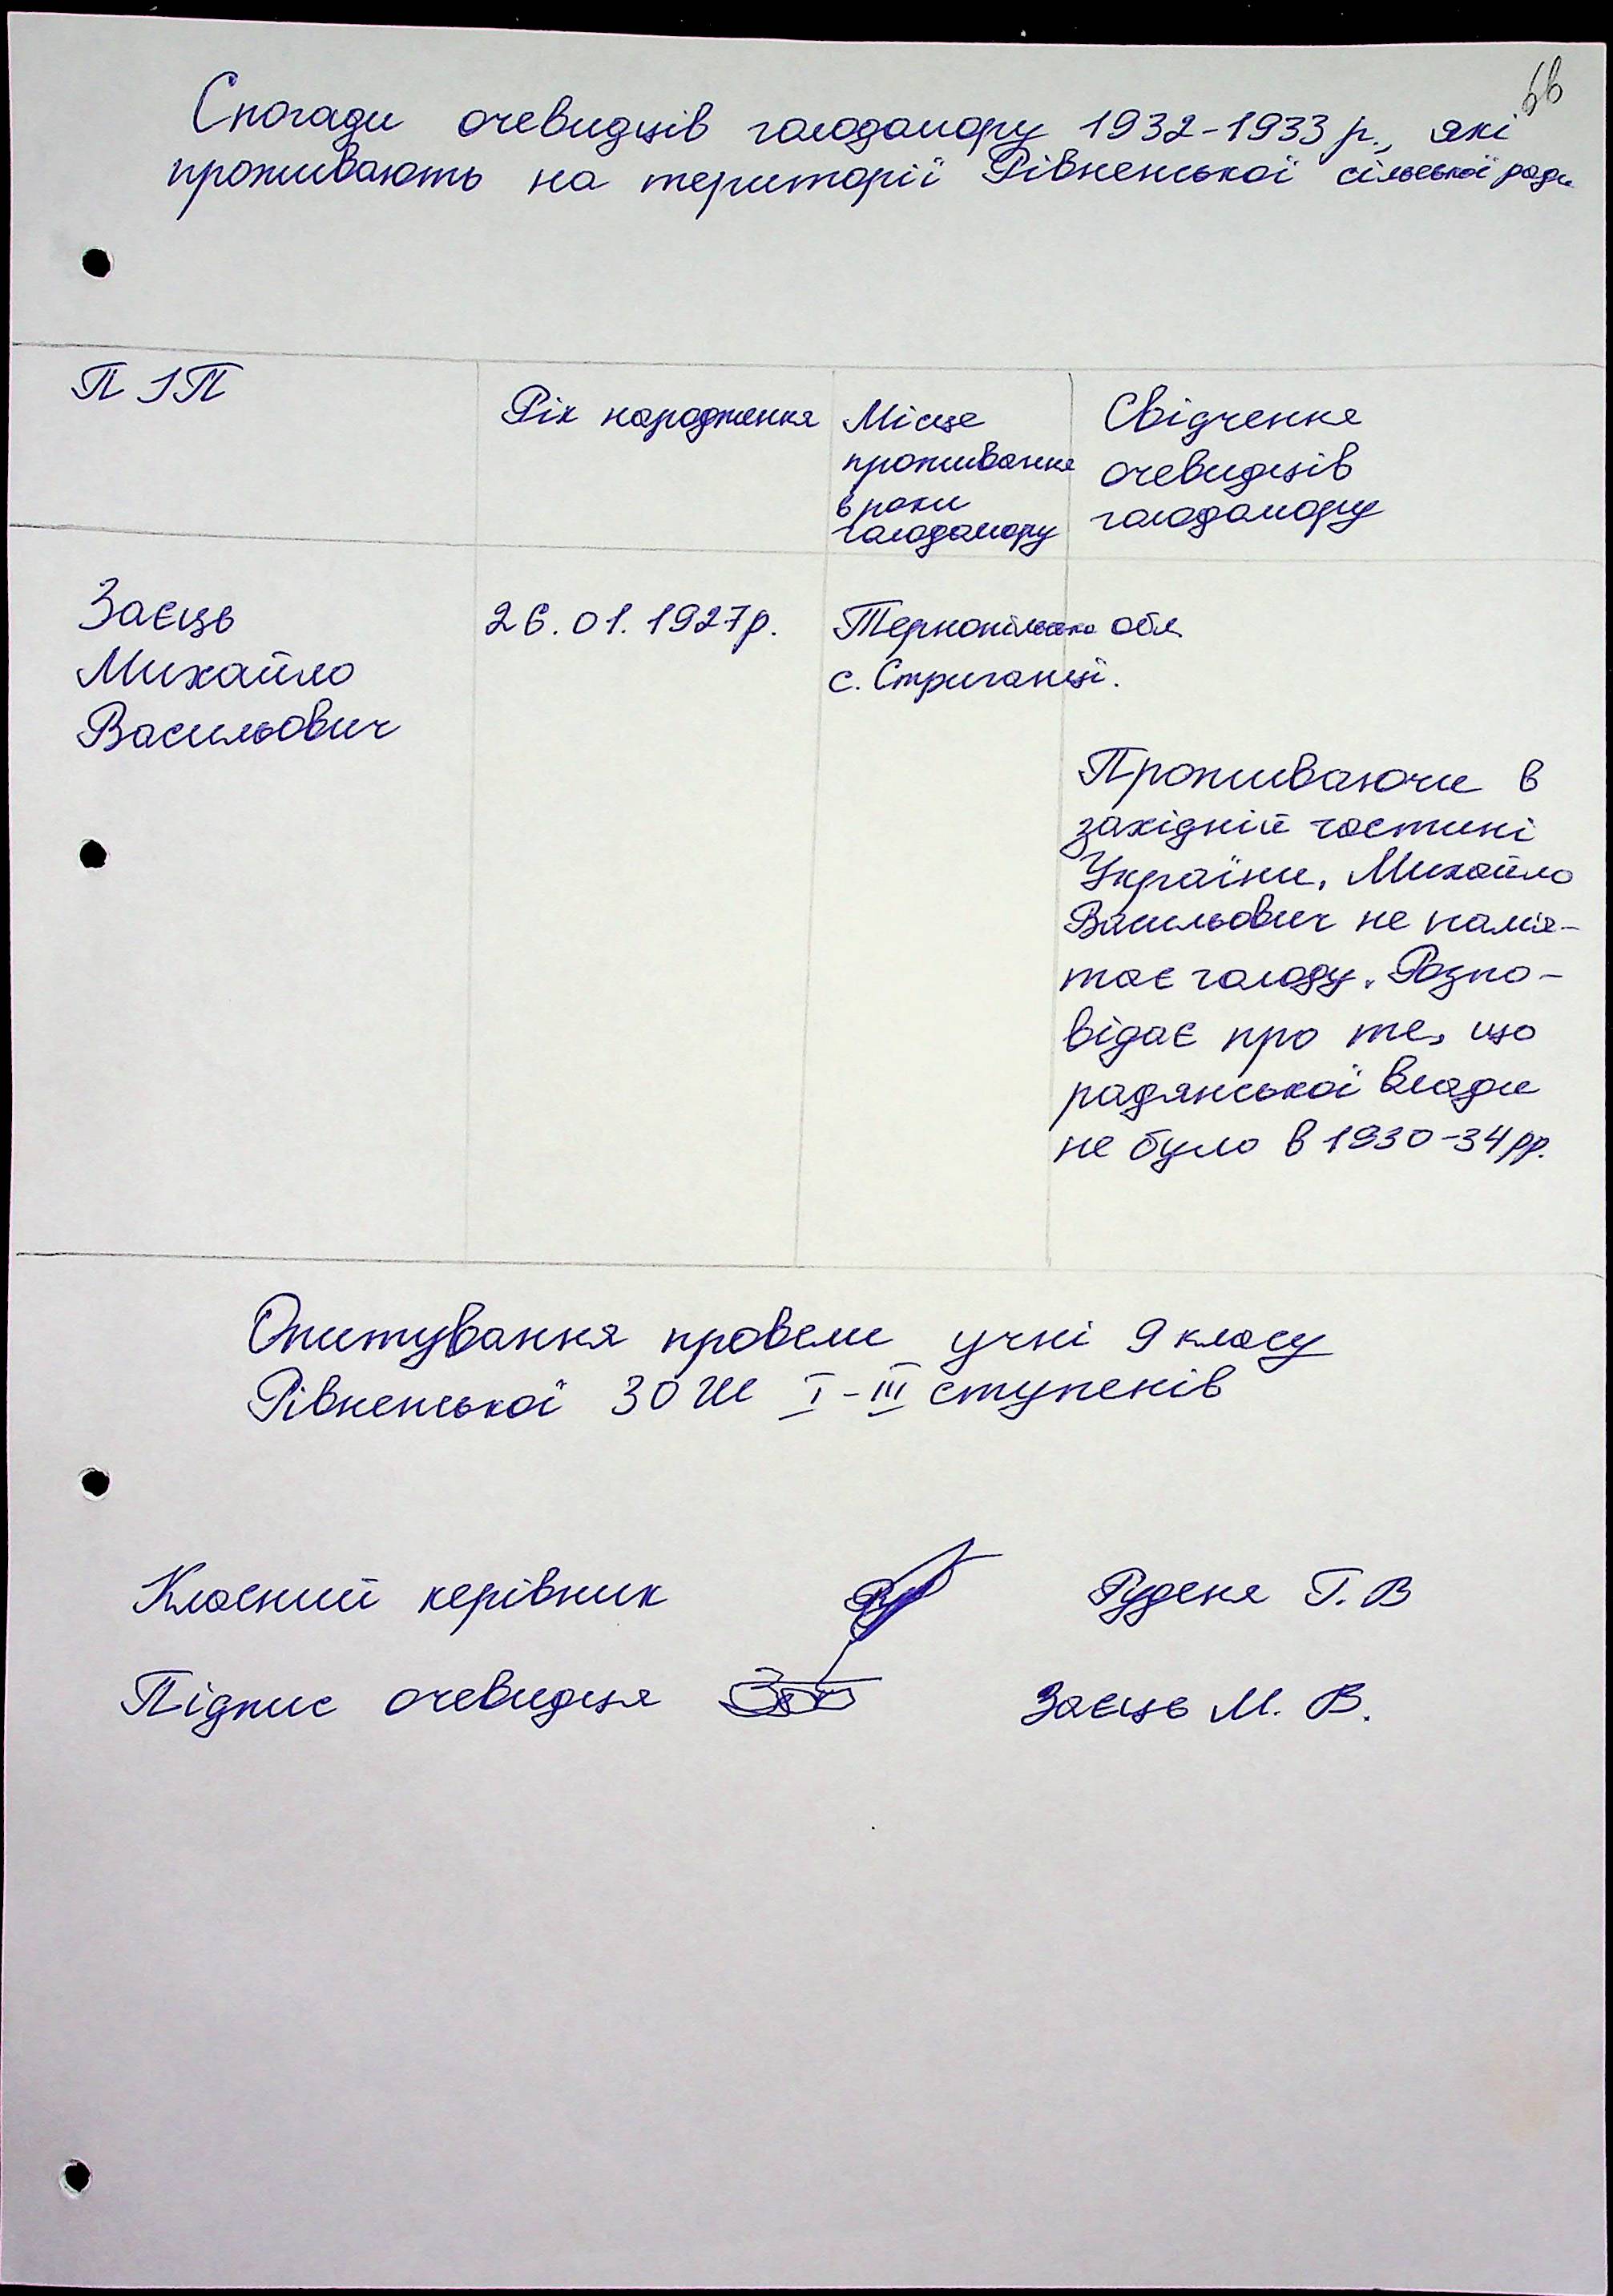 66
Спогади очевидців голодомору 1932-1933 р., які
проживають на території Рівненської сільської ради
П І П
Рік народження
Місце
проживання
в роки
голодомору
Свідчення
очевидців
голодомору
Заєць
Михайло
Васильович
26.01.1927р.
Тернопільська обл.
с. Стриганці.
Проживаючи в
західній частині
України, Михайло
Васильович не памя-
тає голоду. Розпо-
відає про те, що
радянської влади
не було в 1930-34рр.
Опитування провели учні 9 класу
Рівненської ЗОШ І-ІІІ ступенів
Класний керівник
Руденя Г. В
Підпис очевидця
Заєць М. В.